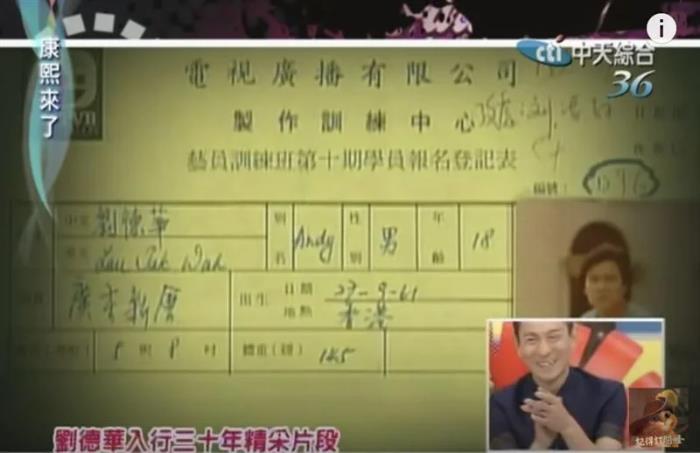 康熙來了
cti 中天綜合
36
電視廣播有限公司
製作訓練中心
藝員訓練班第十期學員報名登記表
編號:
中文 劉德華 別名 Andy 性別 男 年齡 18
Lau Tak Wah
廣東新會 出生 日期 27-9-61
地點 香港
5 呎 8 吋 體重(磅) 145
劉德華入行三十年精采片段
記得訂閱喔